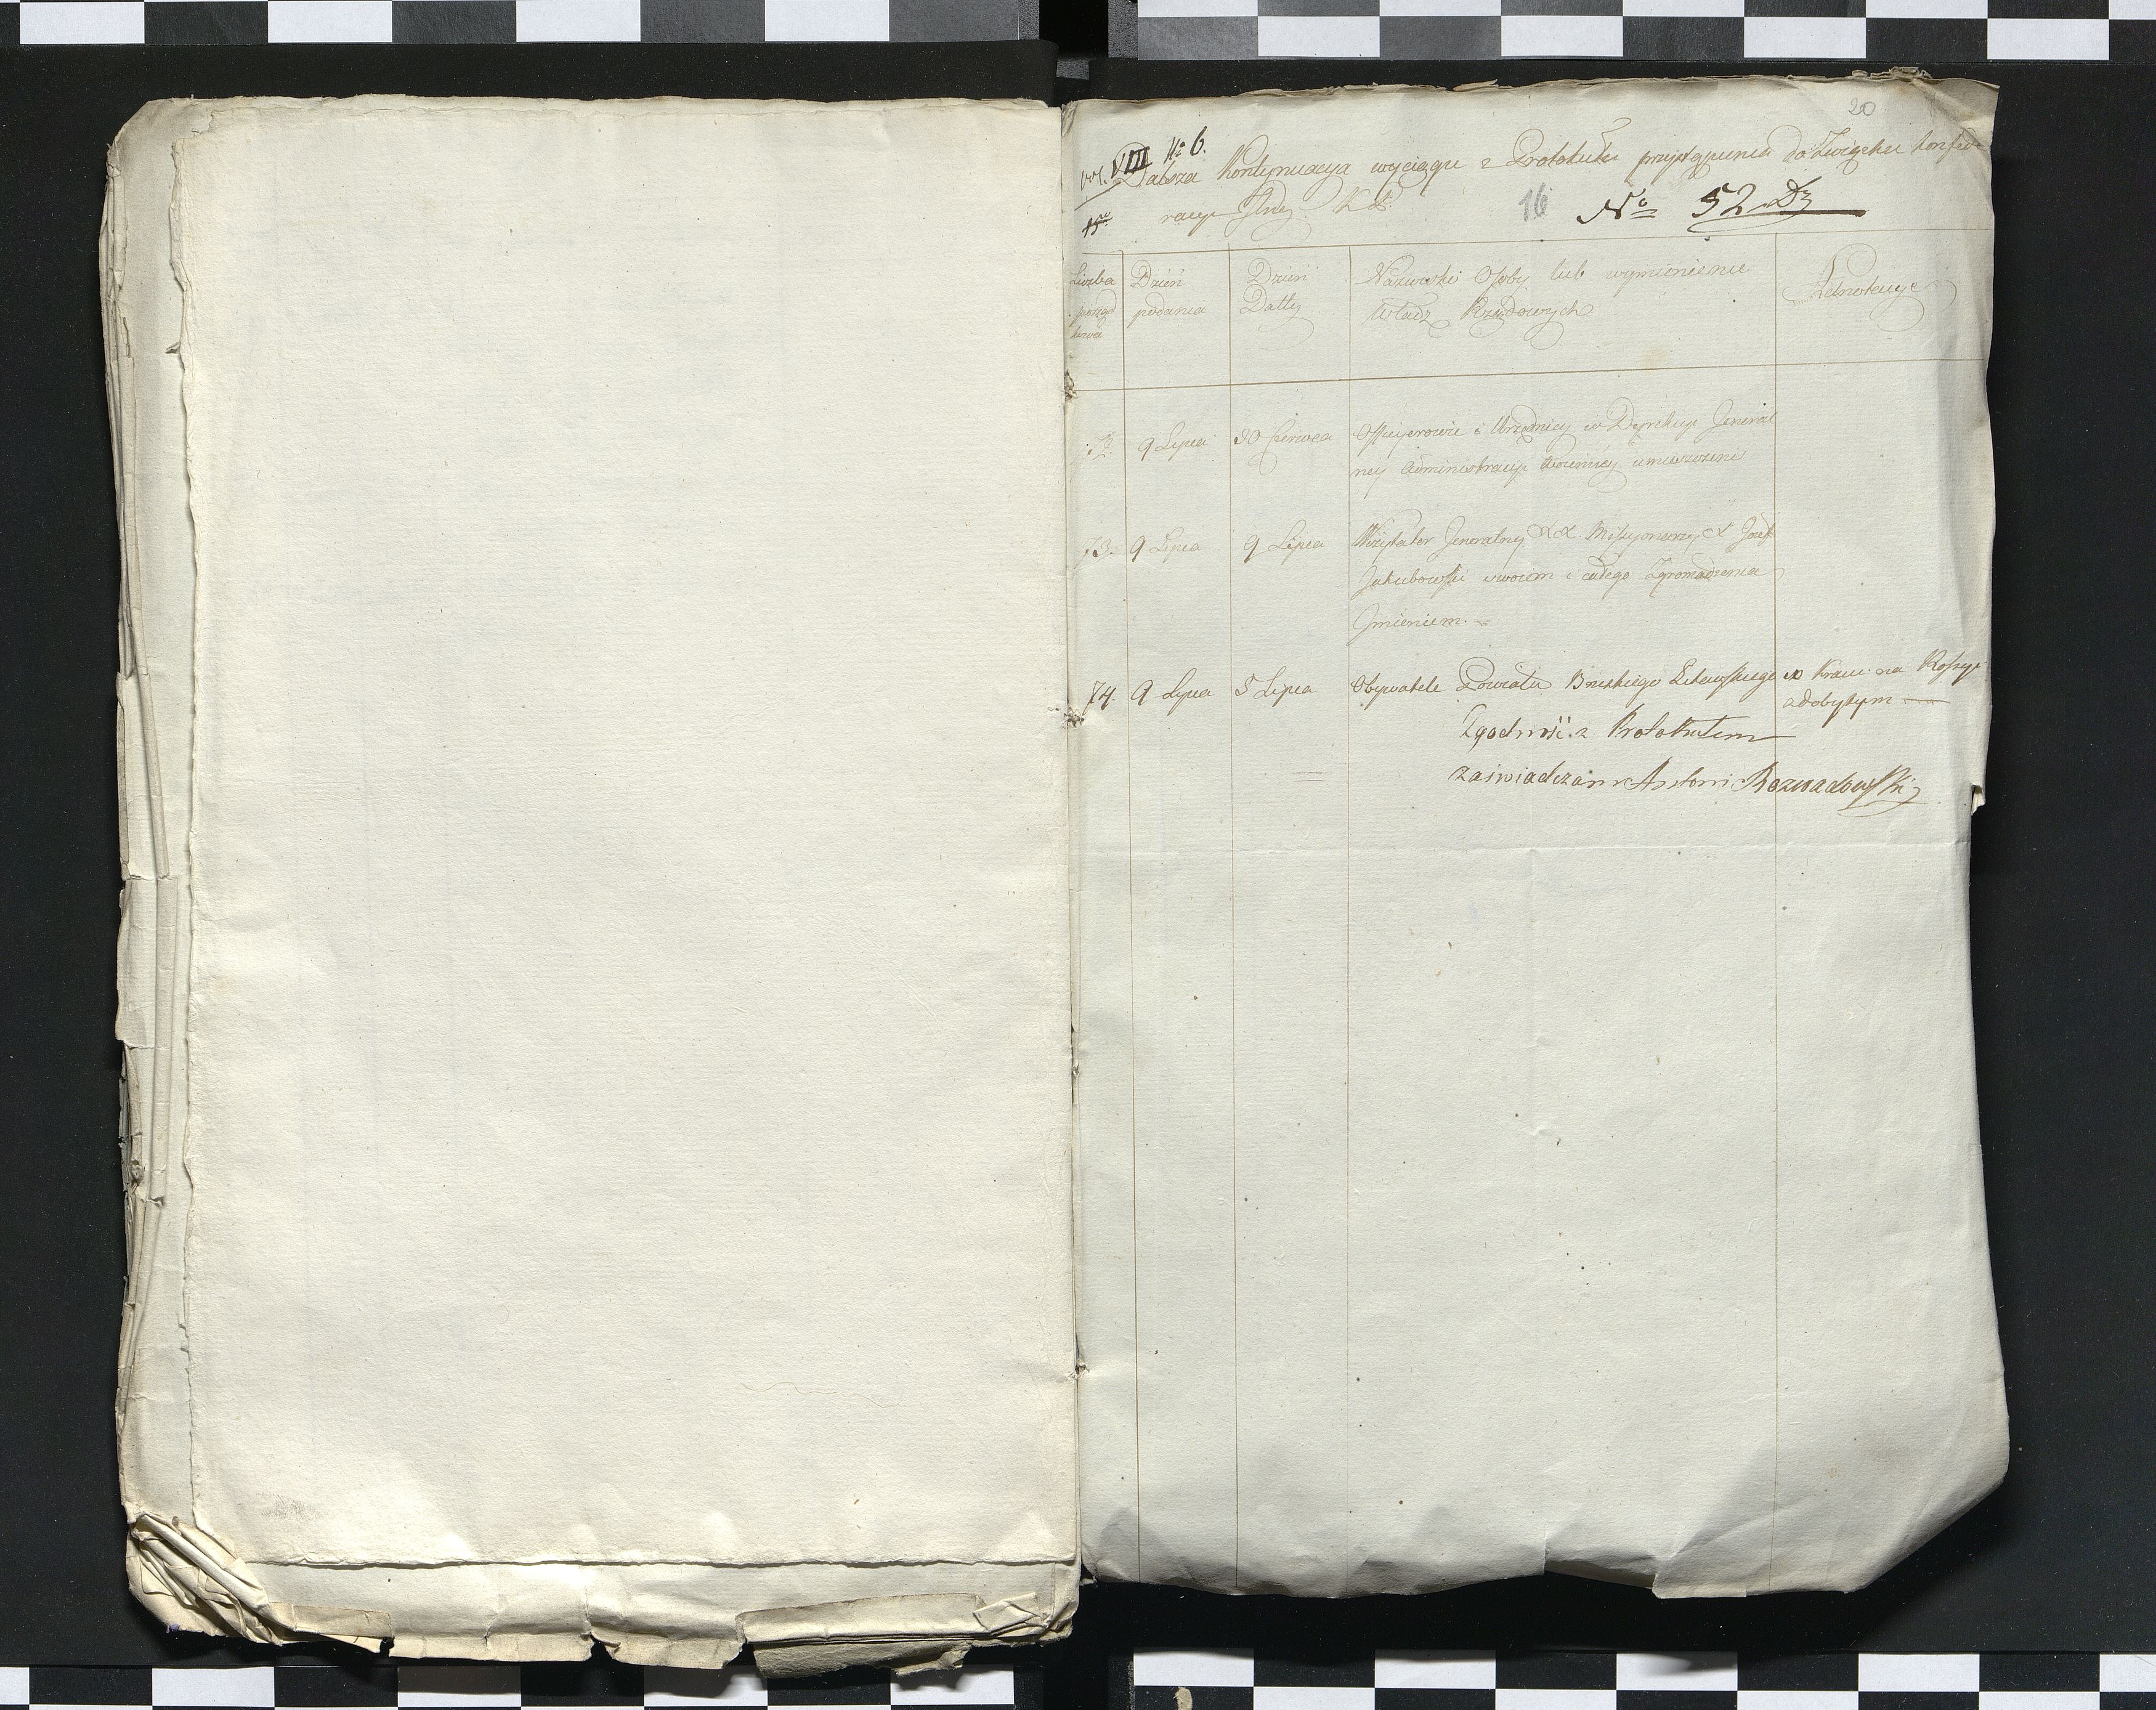 20
vol. VIII No 6.
Dalsza Kontynuacya wyciągu z Protokułu przystąpienia do Związku konfede
racyi Jlney K. P. 16 No 52 Dz
Liczba porząd kowa
Dzień podania
Dzień Datty
Nazwisko Osoby lub wymienienie
Władz Rządowych
Adnotacye
72. 9 Lipca 30 Czerwca Officyerowie i Urzędnicy w Dyrekcyi Jeneral
ney Administracyi Woienney umieszczeni
73. 9 Lipca 9 Lipca Wizytator Jeneralny XX. Missyonarzy X Józef
Jakubowski swoiem i całego Zgromadzenia
Jmieniem.
74. 9 Lipca 5 Lipca Obywatele Powiatu Brzeskiego Litewskiego w Kraiu na Rossyi
zdobytym
Zgodność z Protokułem
zaświadczam Antoni Rozwadowski